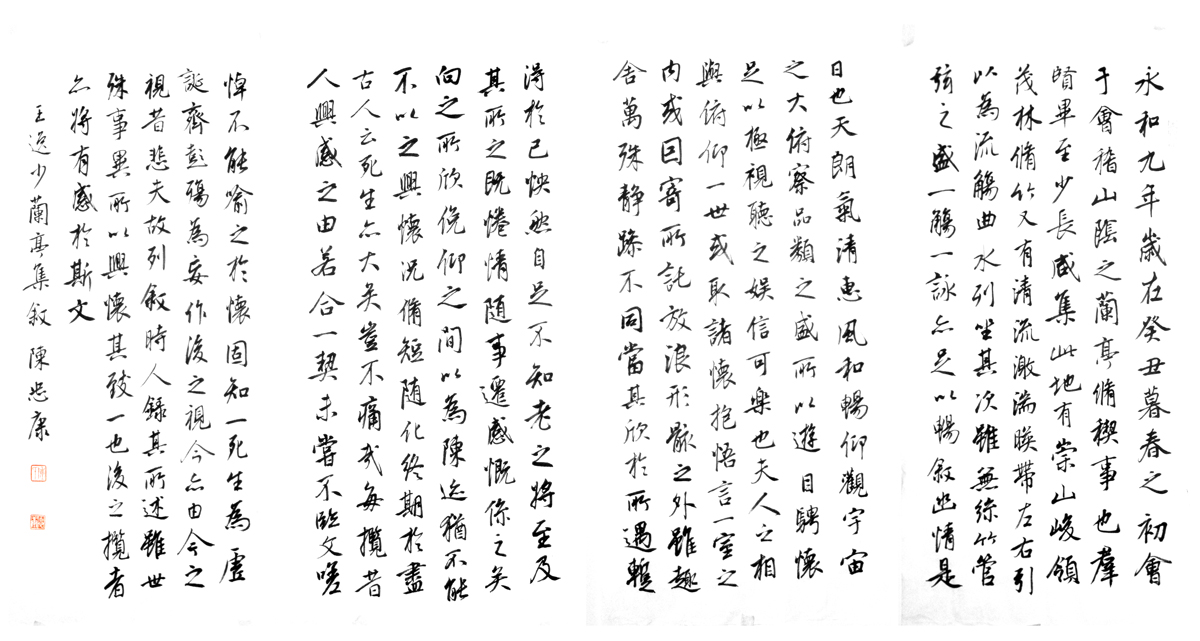 永和九年歲在癸丑暮春之初會
于會稽山陰之蘭亭脩稧事也羣
賢畢至少長咸集此地有崇山峻領
茂林脩竹又有清流激湍暎帶左右引
以為流觴曲水列坐其次雖無絲竹管
弦之盛一觴一詠亦足以暢敘幽情是
日也天朗氣清惠風和暢仰觀宇宙
之大俯察品類之盛所以遊目騁懷
足以極視聽之娛信可樂也夫人之相
與俯仰一世或取諸懷抱悟言一室之
內或因寄所託放浪形骸之外雖趣
舍萬殊静躁不同當其欣於所遇蹔
得於己怏然自足不知老之將至及
其所之既惓情随事遷感慨係之矣
向之所欣俛仰之間以為陳迹猶不能
不以之興懷況脩短随化終期於盡
古人云死生亦大矣豈不痛哉每攬昔
人興感之由若合一契未嘗不臨文嗟
悼不能喻之於懷固知一死生為虛
誕齊彭殤為妄作後之視今亦由今之
視昔悲夫故列敘時人録其所述雖世
殊事異所以興懷其致一也後之攬者
亦將有感於斯文
王逸少蘭亭集敘 陳忠康